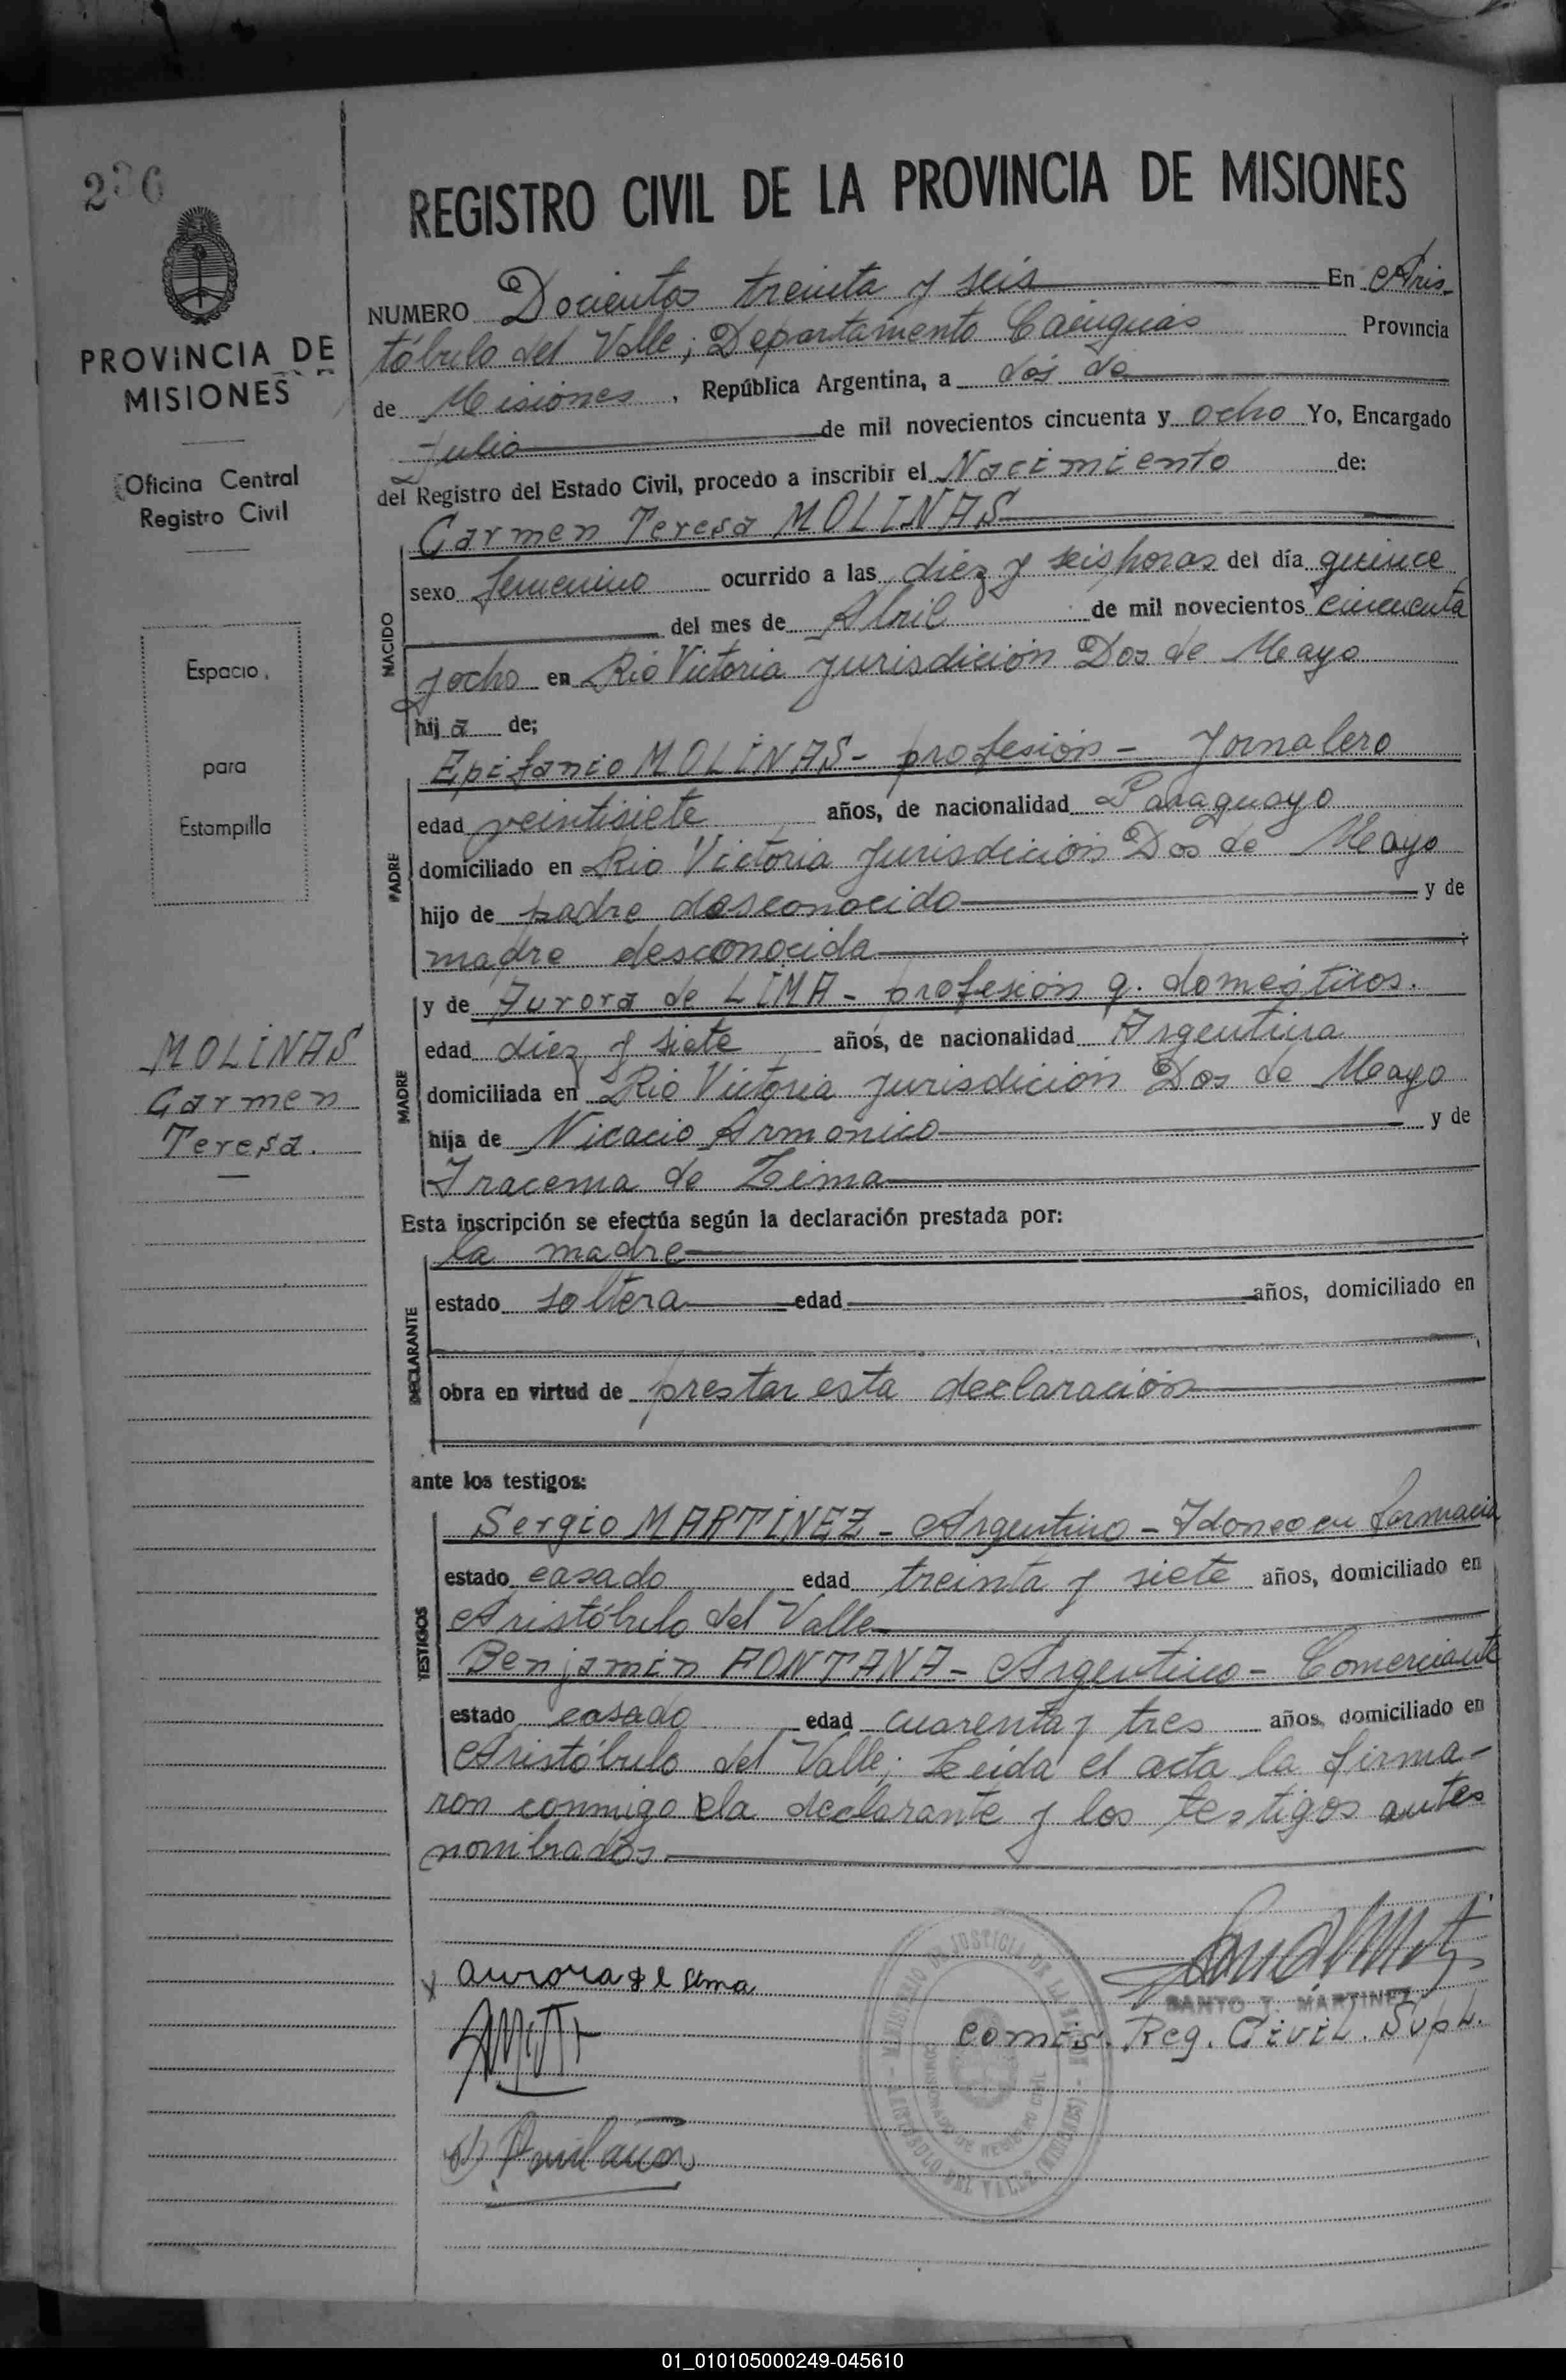 236
PROVINCIA DE
MISIONES
Oficina Central
Registro Civil
Espacio
para
Estampilla
MOLINAS
Carmen
Teresa.
REGISTRO CIVIL DE LA PROVINCIA DE MISIONES
NUMERO Docientos treinta y seis En Aris-
tóbulo del Valle; Departamento Cainguás Provincia
de Misiones, República Argentina, a dos de
Julio de mil novecientos cincuenta y ocho Yo, Encargado
del Registro del Estado Civil, procedo a inscribir el Nacimiento de:
Carmen Teresa MOLINAS
NACIDO
sexo femenino ocurrido a las diez y seis horas del día quince
del mes de Abril de mil novecientos cincuenta
y ocho en Rio Victoria Jurisdición Dos de Mayo
hija de;
Epifanio MOLINAS - profesión - Jornalero
PADRE
edad veintisiete años, de nacionalidad Paraguayo
domiciliado en Rio Victoria Jurisdición Dos de Mayo
hijo de padre desconocido y de
madre desconocida ;
y de Aurora de LIMA - profesión q. domésticos.
MADRE
edad diez y siete años, de nacionalidad Argentina
domiciliada en Rio Victoria Jurisdición Dos de Mayo
hija de Nicacio Armonico y de
Iracema de Lima
Esta inscripción se efectúa según la declaración prestada por:
la madre
DECLARANTE
estado soltera edad años, domiciliado en
obra en virtud de prestar esta declaración
ante los testigos:
Sergio MARTINEZ - Argentino - Idoneo en farmacia
TESTIGOS
estado casado edad treinta y siete años, domiciliado en
Aristóbulo del Valle
Benjamin FONTANA - Argentino - Comerciante
estado casado edad cuarenta y tres años, domiciliado en
Aristóbulo del Valle; Leida el acta la firma-
ron conmigo la declarante y los testigos antes
nombrados.
aurora de lima
SANTO T. MARTINEZ
Comis. Reg. Civil. Supl.
MINISTERIO DE JUSTICIA DE LA NACION
ARISTOBULO DEL VALLE (MISIONES)
DE REGISTRO CIVIL
01_010105000249-045610